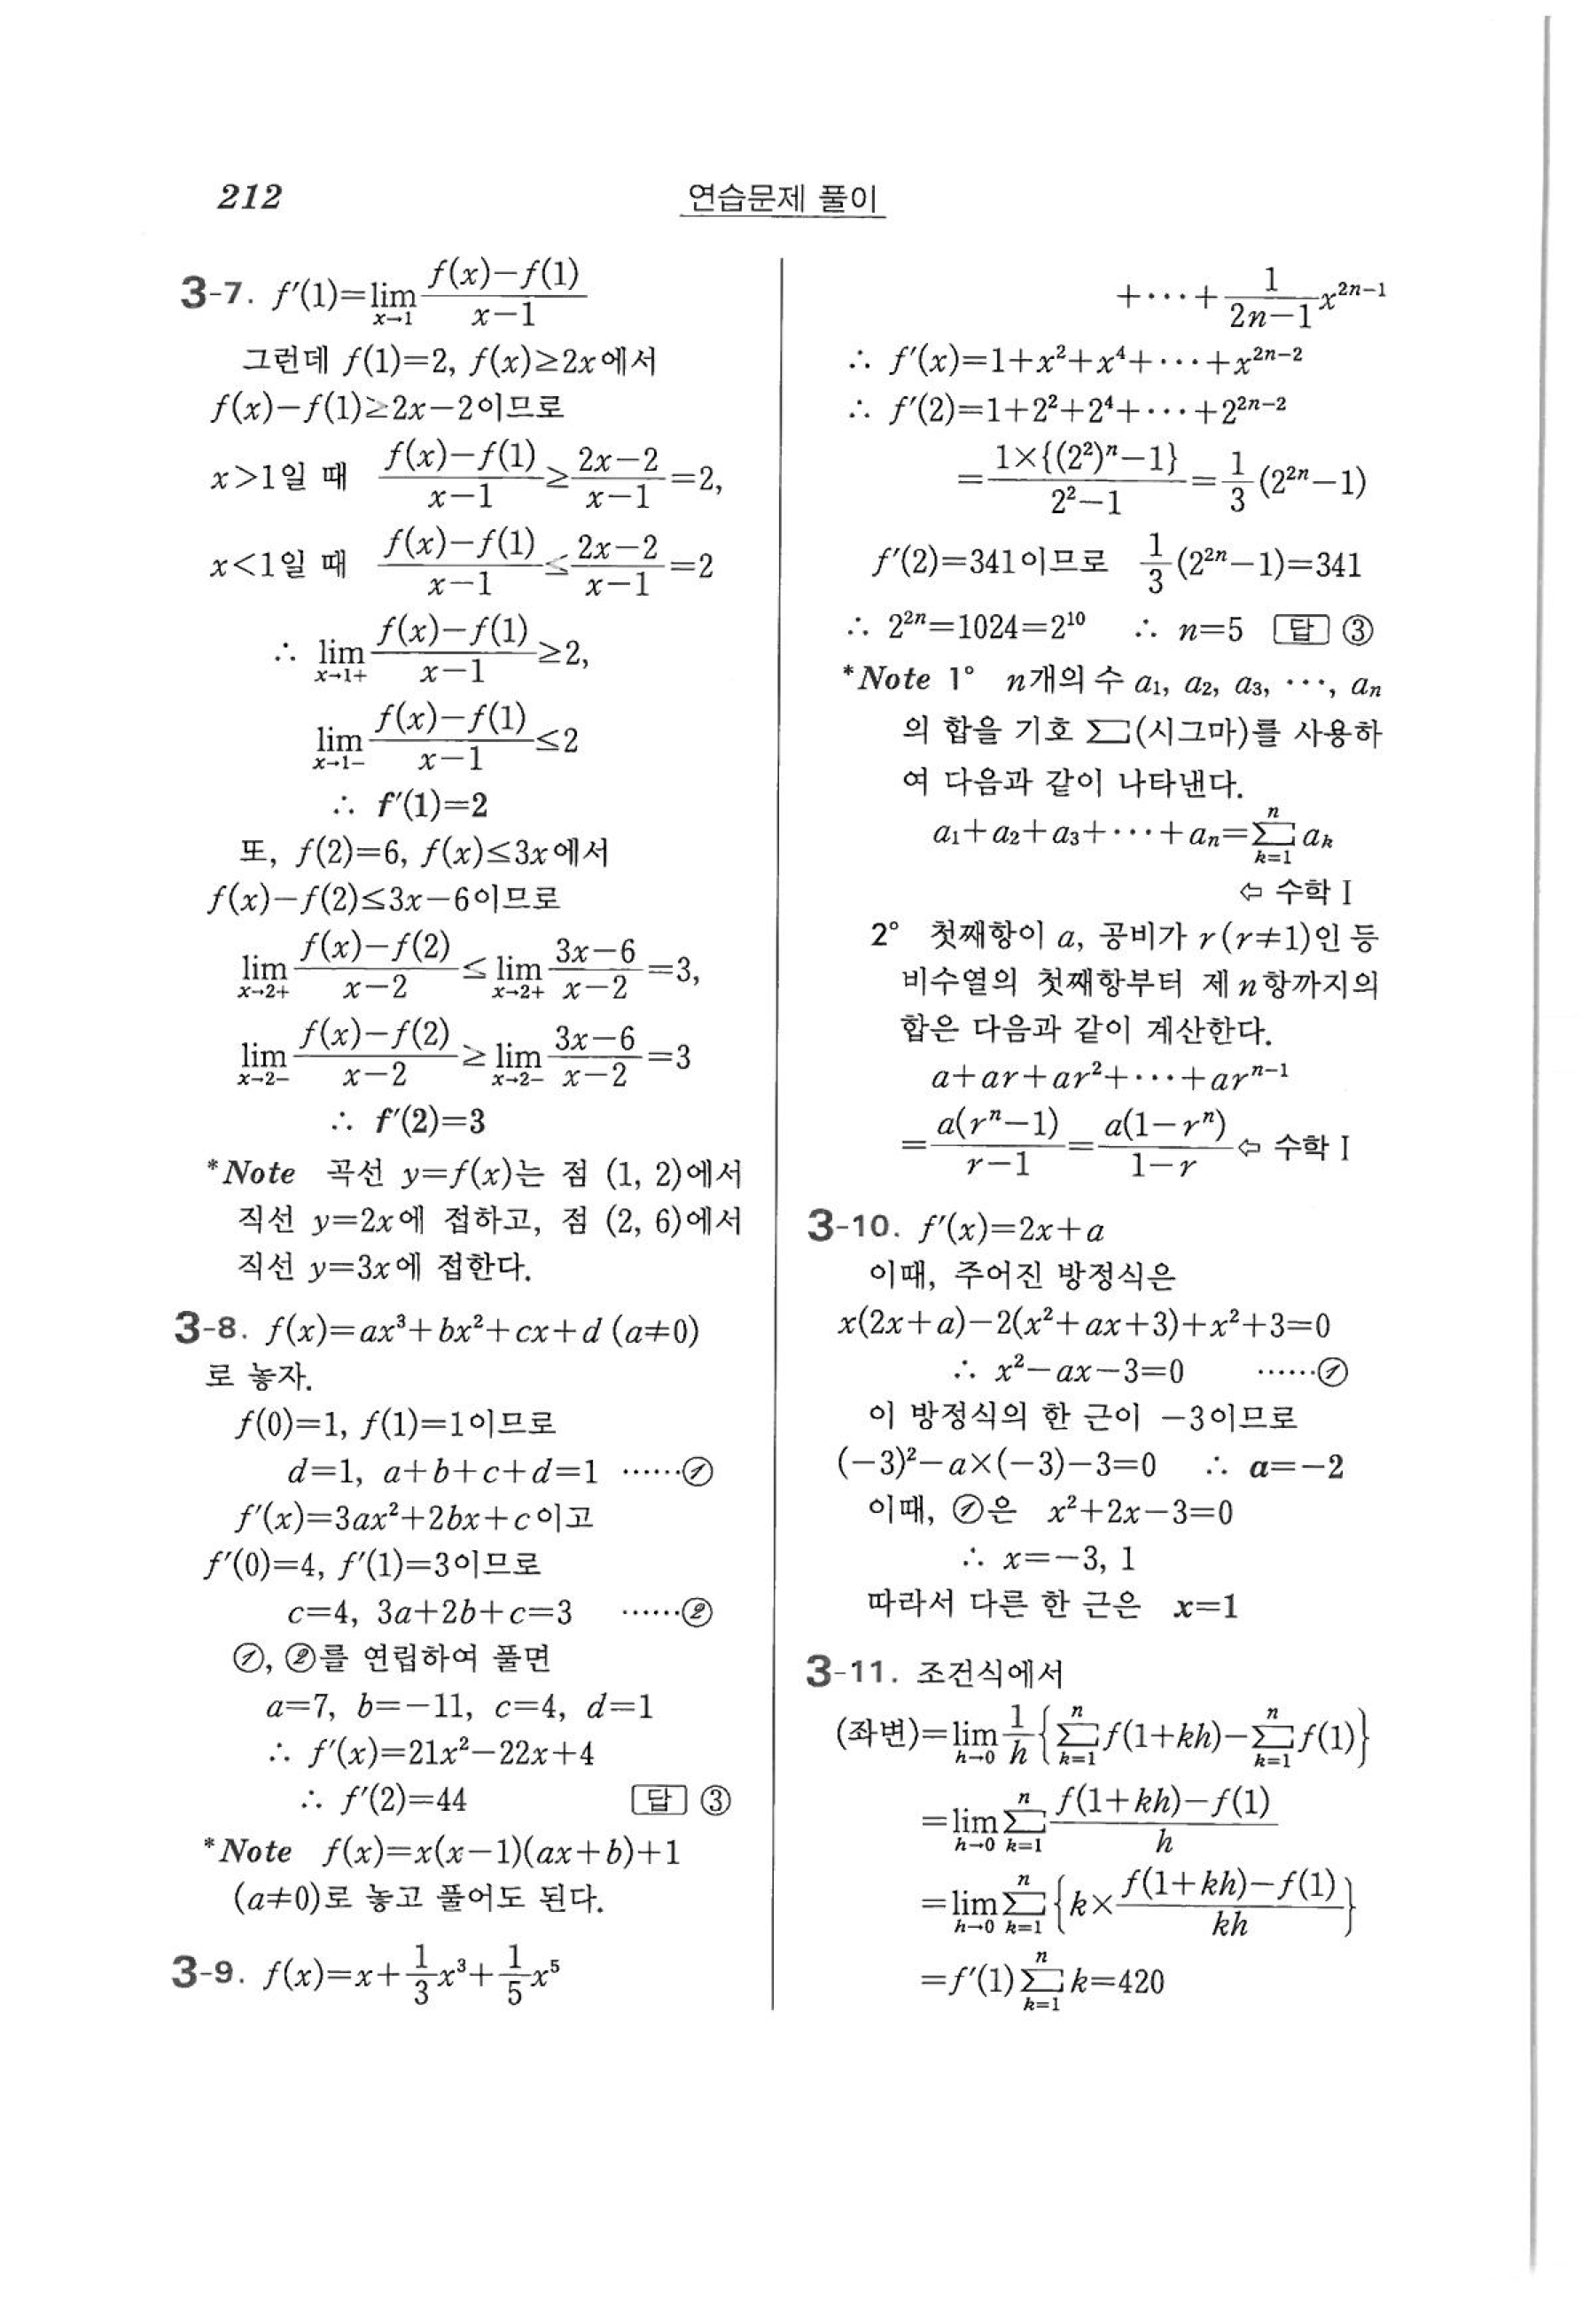 212
연습문제 풀이
3-7. f′(1)=lim_{x→1} (f(x)−f(1))/(x−1)
그런데 f(1)=2, f(x)≥2x에서
f(x)−f(1)≥2x−2이므로
x>1일 때 (f(x)−f(1))/(x−1)≥(2x−2)/(x−1)=2,
x<1일 때 (f(x)−f(1))/(x−1)≤(2x−2)/(x−1)=2
∴ lim_{x→1+} (f(x)−f(1))/(x−1)≥2,
lim_{x→1−} (f(x)−f(1))/(x−1)≤2
∴ f′(1)=2
또, f(2)=6, f(x)≤3x에서
f(x)−f(2)≤3x−6이므로
lim_{x→2+} (f(x)−f(2))/(x−2)≤lim_{x→2+} (3x−6)/(x−2)=3,
lim_{x→2−} (f(x)−f(2))/(x−2)≥lim_{x→2−} (3x−6)/(x−2)=3
∴ f′(2)=3
*Note 곡선 y=f(x)는 점 (1, 2)에서
직선 y=2x에 접하고, 점 (2, 6)에서
직선 y=3x에 접한다.
3-8. f(x)=ax³+bx²+cx+d (a≠0)
로 놓자.
f(0)=1, f(1)=1이므로
d=1, a+b+c+d=1 ……①
f′(x)=3ax²+2bx+c이고
f′(0)=4, f′(1)=3이므로
c=4, 3a+2b+c=3 ……②
①, ②를 연립하여 풀면
a=7, b=−11, c=4, d=1
∴ f′(x)=21x²−22x+4
∴ f′(2)=44 답 ③
*Note f(x)=x(x−1)(ax+b)+1
(a≠0)로 놓고 풀어도 된다.
3-9. f(x)=x+1/3 x³+1/5 x⁵
+⋯+1/(2n−1) x^{2n−1}
∴ f′(x)=1+x²+x⁴+⋯+x^{2n−2}
∴ f′(2)=1+2²+2⁴+⋯+2^{2n−2}
=(1×{(2²)ⁿ−1})/(2²−1)=1/3 (2^{2n}−1)
f′(2)=341이므로 1/3 (2^{2n}−1)=341
∴ 2^{2n}=1024=2¹⁰ ∴ n=5 답 ③
*Note 1° n개의 수 a₁, a₂, a₃, ⋯, aₙ
의 합을 기호 ∑(시그마)를 사용하
여 다음과 같이 나타낸다.
a₁+a₂+a₃+⋯+aₙ=∑_{k=1}^{n} aₖ
⇦ 수학 I
2° 첫째항이 a, 공비가 r(r≠1)인 등
비수열의 첫째항부터 제 n항까지의
합은 다음과 같이 계산한다.
a+ar+ar²+⋯+ar^{n−1}
=a(rⁿ−1)/(r−1)=a(1−rⁿ)/(1−r) ⇦ 수학 I
3-10. f′(x)=2x+a
이때, 주어진 방정식은
x(2x+a)−2(x²+ax+3)+x²+3=0
∴ x²−ax−3=0 ……①
이 방정식의 한 근이 −3이므로
(−3)²−a×(−3)−3=0 ∴ a=−2
이때, ①은 x²+2x−3=0
∴ x=−3, 1
따라서 다른 한 근은 x=1
3-11. 조건식에서
(좌변)=lim_{h→0} 1/h {∑_{k=1}^{n} f(1+kh)−∑_{k=1}^{n} f(1)}
=lim_{h→0} ∑_{k=1}^{n} (f(1+kh)−f(1))/h
=lim_{h→0} ∑_{k=1}^{n} {k×(f(1+kh)−f(1))/kh}
=f′(1)∑_{k=1}^{n} k=420